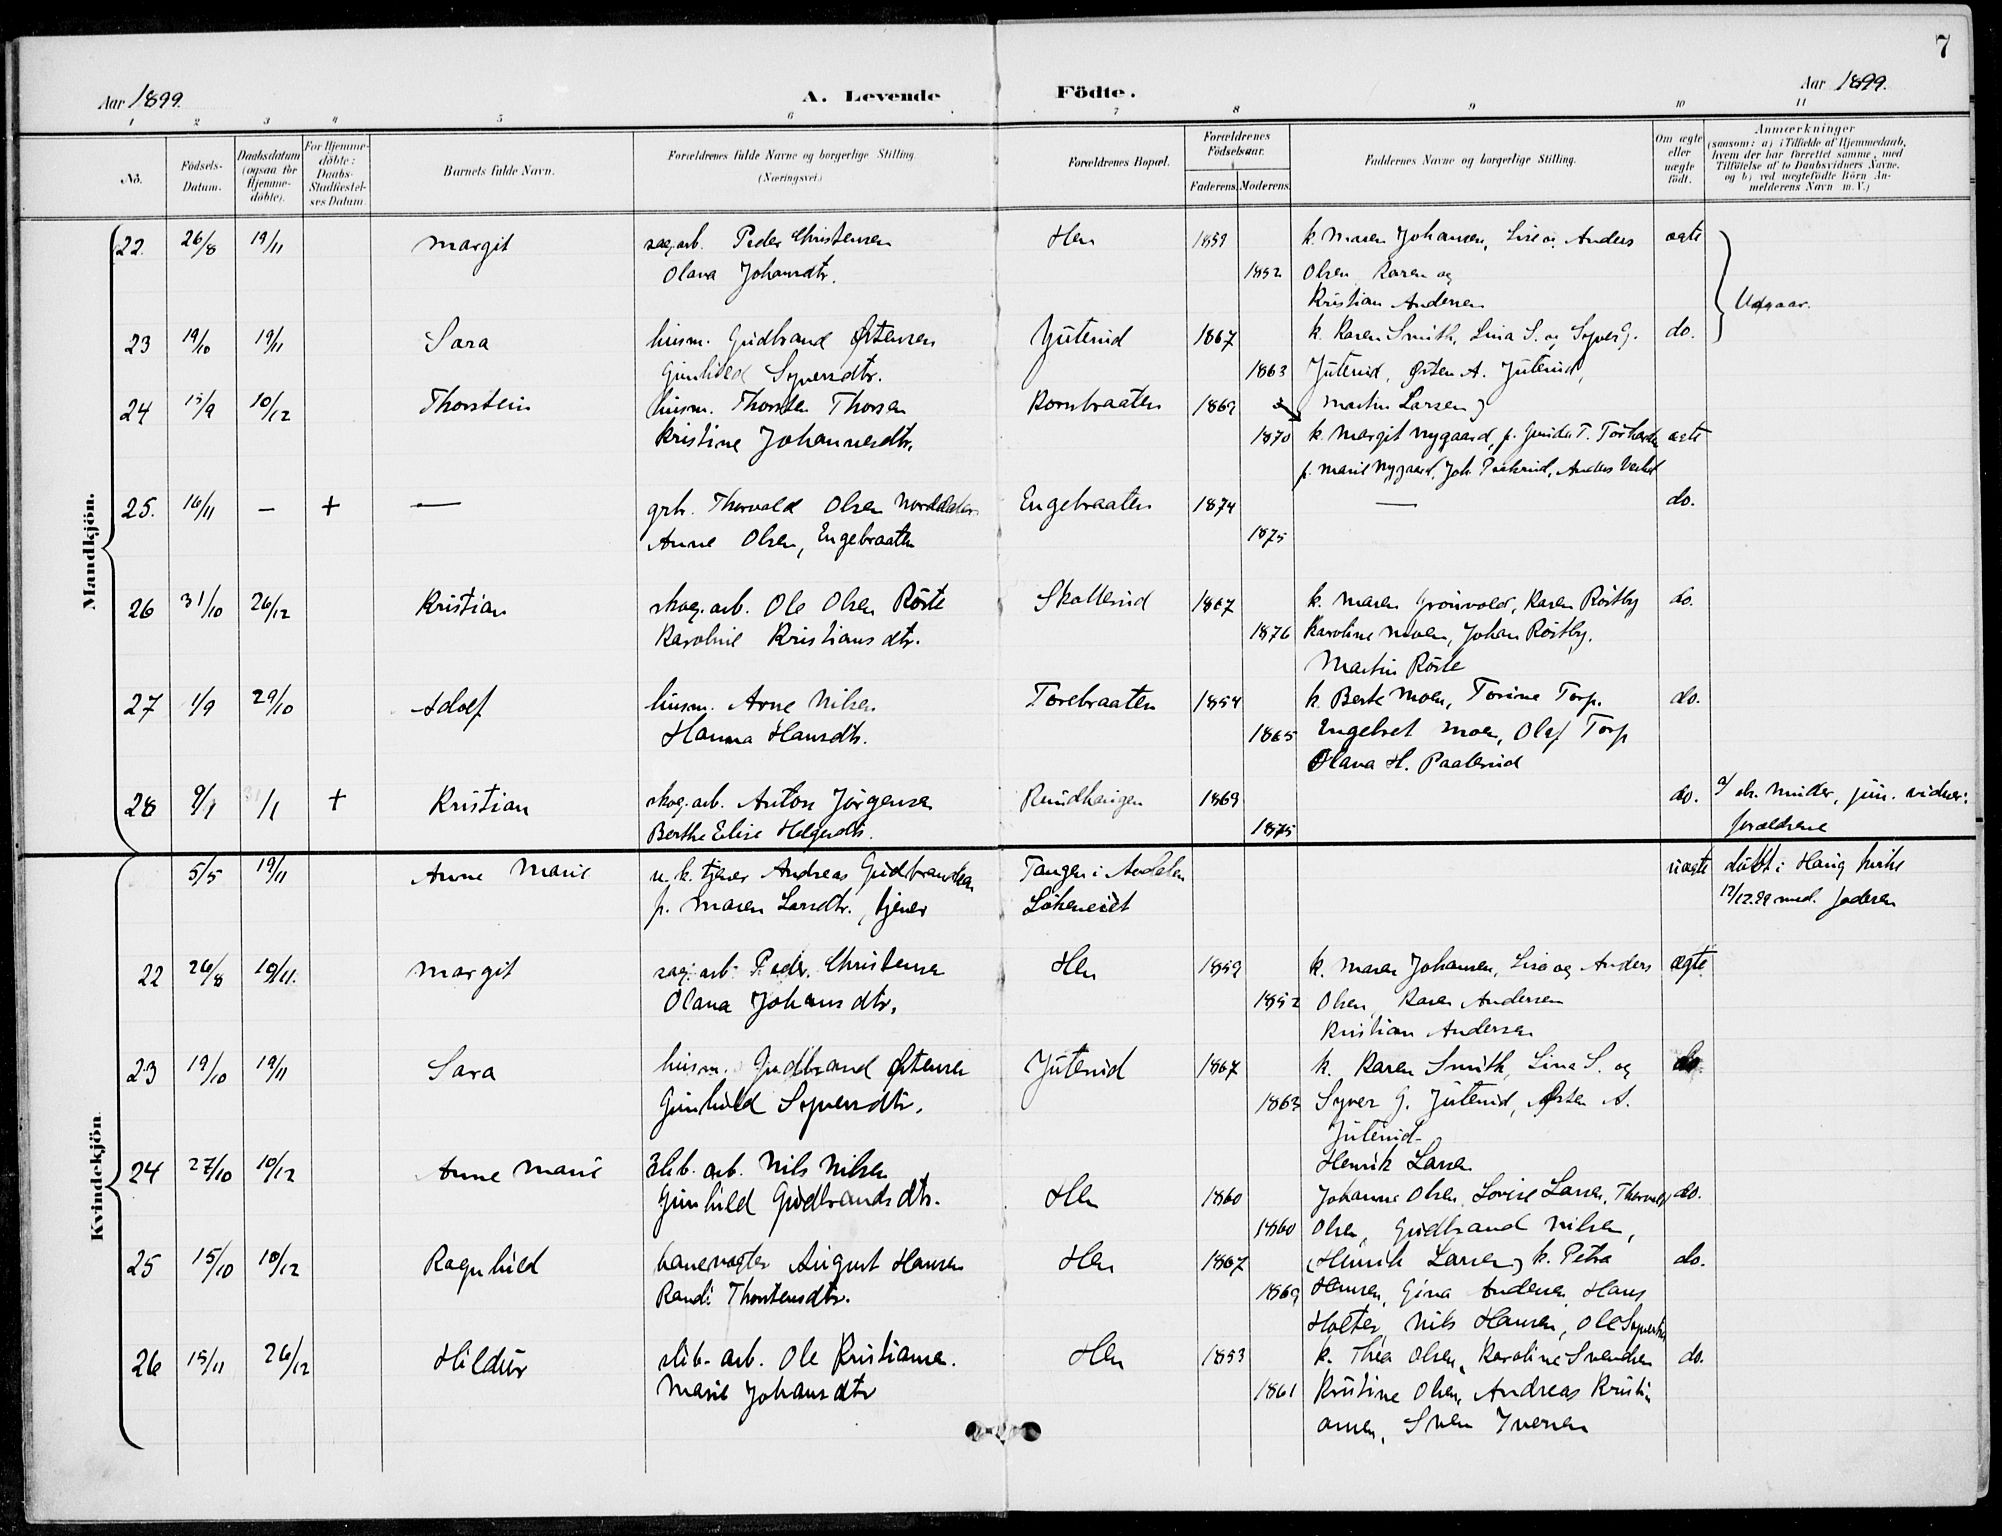 7
Aar 1899.
A. Levende Födte.
Aar 1899.
1 2 3 4 5 6 7 8 9 10 11
No.
Födsels-Datum.
Daabsdatum (ogsaa for Hjemme-döbte).
For Hjemme-döbte: Daabs-Stadfæstel-ses Datum.
Barnets fulde Navn.
Forældrenes fulde Navne og borgerlige Stilling.
(Næringsvei.)
Forældrenes Bopæl.
Forældrenes Födselsaar.
Faderens. Moderens.
Faddernes Navne og borgerlige Stilling.
Om ægte eller uægte födt.
Anmærkninger
(saasom: a) i Tilfælde af Hjemmedaab, hvem der har forrettet samme, med Tilföielse af to Daabsvidners Navne, og b) ved uægtefödte Börn An-melderens Navn m. V.)
Mandkjön.
22. 26/8 19/11 Margit sag.arb. Peder Christensen Hen 1859 k. Maren Johansen, Lise og Anders ægte
Olava Johansdtr. 1852 Olsen, Karen og
Kristian Andersen Udgaar.
23 19/10 19/11 Sara husm. Gudbrand Østensen Juterud 1867 k. Karen Smith, Lina S. og Syver G. do.
Gunhild Syversdtr. 1863 Juterud, Østen A. Juterud,
24 15/9 10/12 Thorstein husm. Thorsten Thorsen Kornbraaten 1869 Martin Larsen)
Kristine Johannesdtr. 1870 k. Margit Nygaard, p. Gunda T. ægte
p. Marie Nygaard, Joh.
25. 16/11 – + — grbr. Thorvald Olsen Engebraaten 1874 — do.
Anne Olsen, Engebraaten 1875
26 31/10 26/12 Kristian skog.arb. Ole Olsen Röste Skollerud 1867 k. Maren Grönvold, Karen Röstby do.
Karoline Kristiansdtr. 1876 Karoline Moen, Johan Röstby.
Martin Röste
27 1/9 29/10 Adolf husm. Arne Nilsen Torebraaten 1854 k. Berte Moen, Torine Torp. do.
Hanna Hansdtr. 1865 Engebret Moen, Olaf Torp
Olava H. Paalerud
28 9/1 1/1 + Kristian skog.arb. Anton Jörgensen Rundhaugen 1869 do. a/ jun. vidner:
Berthe Elise Helgesdtr. 1875 forældrene
Kvindekjön
5/5 19/11 Anne Marie u. k. tjener Andreas Gudbrandsen Tangen i Aadalen uægte döbt i Haug kirke
p. Maren Larsdtr., tjener Lökeneiet 17/12.99 med. faderen
22 26/8 19/11. Margit sag.arb. Peder Christensen Hen 1859 k. Maren Johansen, Lise og Anders ægte
Olana Johansdtr. 1852 Olsen, Karen Andersen
Kristian Andersen
23 19/10 19/11 Sara husm. Gudbrand Østensen Juterud 1867 k. Karen Smith, Lina S. og do.
Gunhild Syversdtr. 1863 Syver G. Juterud, Østen A.
Juterud
24 27/10 10/12 Anne Marie Slib. arb. Nils Nilsen Henrik Larsen
Gunhild Gudbrandsdtr. Hen 1860 Johanne Olsen, Lovise Larsen, Thorvald do.
1860 Olsen, Gudbrand Nilsen,
25 15/10 10/12 Ragnhild banevogter August Hansen Hen 1867 (Henrik Larsen) k. Petra do.
Randi Thorstensdtr. 1869 Hansen, Gina Andersen, Hans
Holter, Nils Hansen, Ole Syversen
26 15/11 26/12 Hildur slib. arb. Ole Kristiansen. Hen 1853 k. Thea Olsen, Karoline Svendsen do.
Marie Johansdtr 1861 Kristine Olsen, Andreas Kristi
ansen, Sven Iversen